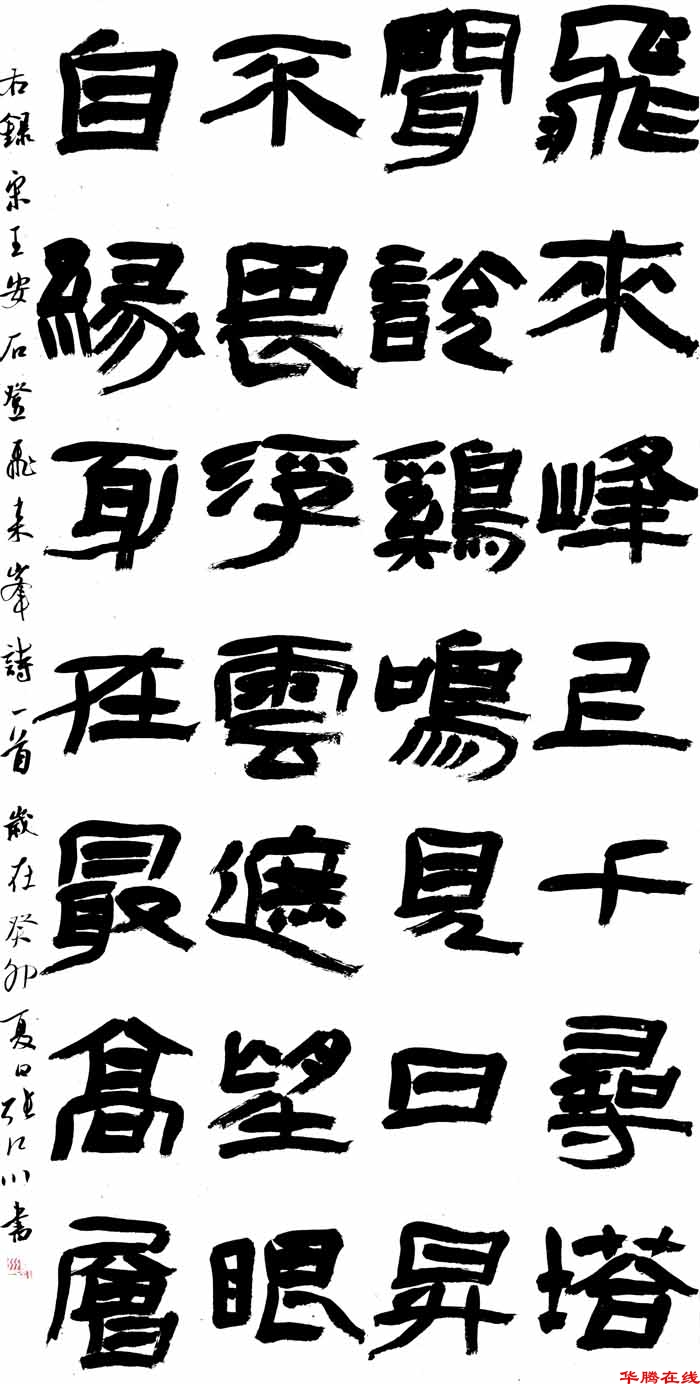 飛來峰上千尋塔
聞說鷄鳴見日昇
不畏浮雲遮望眼
自緣身在最高層
右錄宋王安石登飛來峯詩一首 歲在癸卯夏日江川書
华腾在线